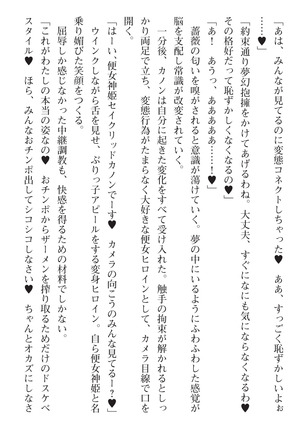 「あは、みんなが見てるのに変態コネクトしちゃった♥　ああ、すっごく恥ずかしいよぉ
…………♥」
「約束通り夢幻抱擁をかけてあげるわね。大丈夫、すぐになにも気にならなくなるわ♥
その格好だって恥ずかしくなくなるの♥」
「あ！　あうっ、ああああぁ……♥」
薔薇の匂いを嗅がされると意識が蕩けていく。夢の中にいるようにふわふわした感覚が
脳を支配し常識が改変されていく。
一分後、カノンは自分に起きた変化をすべて受け入れた。触手の拘束が解かれるとしっ
かり両足で立ち、変態行為がたまらなく大好きな便女ヒロインとして、カメラ目線で口を
開く。
「はーい、便女神姫セイクリッドカノンでーす♥　カメラの向こうのみんな見てるー？♥」
ウインクしながら舌を見せ、ぶりっ子アピールをする変身ヒロイン。自ら便女神姫と名
乗り媚びた笑顔をつくる。
屈辱しか感じなかった中継調教も、快感を得るための材料でしかない。
「これがわたしの本当の姿なの♥　おチンポからザーメンを搾り取るためだけのドスケベ
スタイル♥　ほら、みんなおチンポ出してシコシコしなさい♥　ちゃんとオカズにしなさ